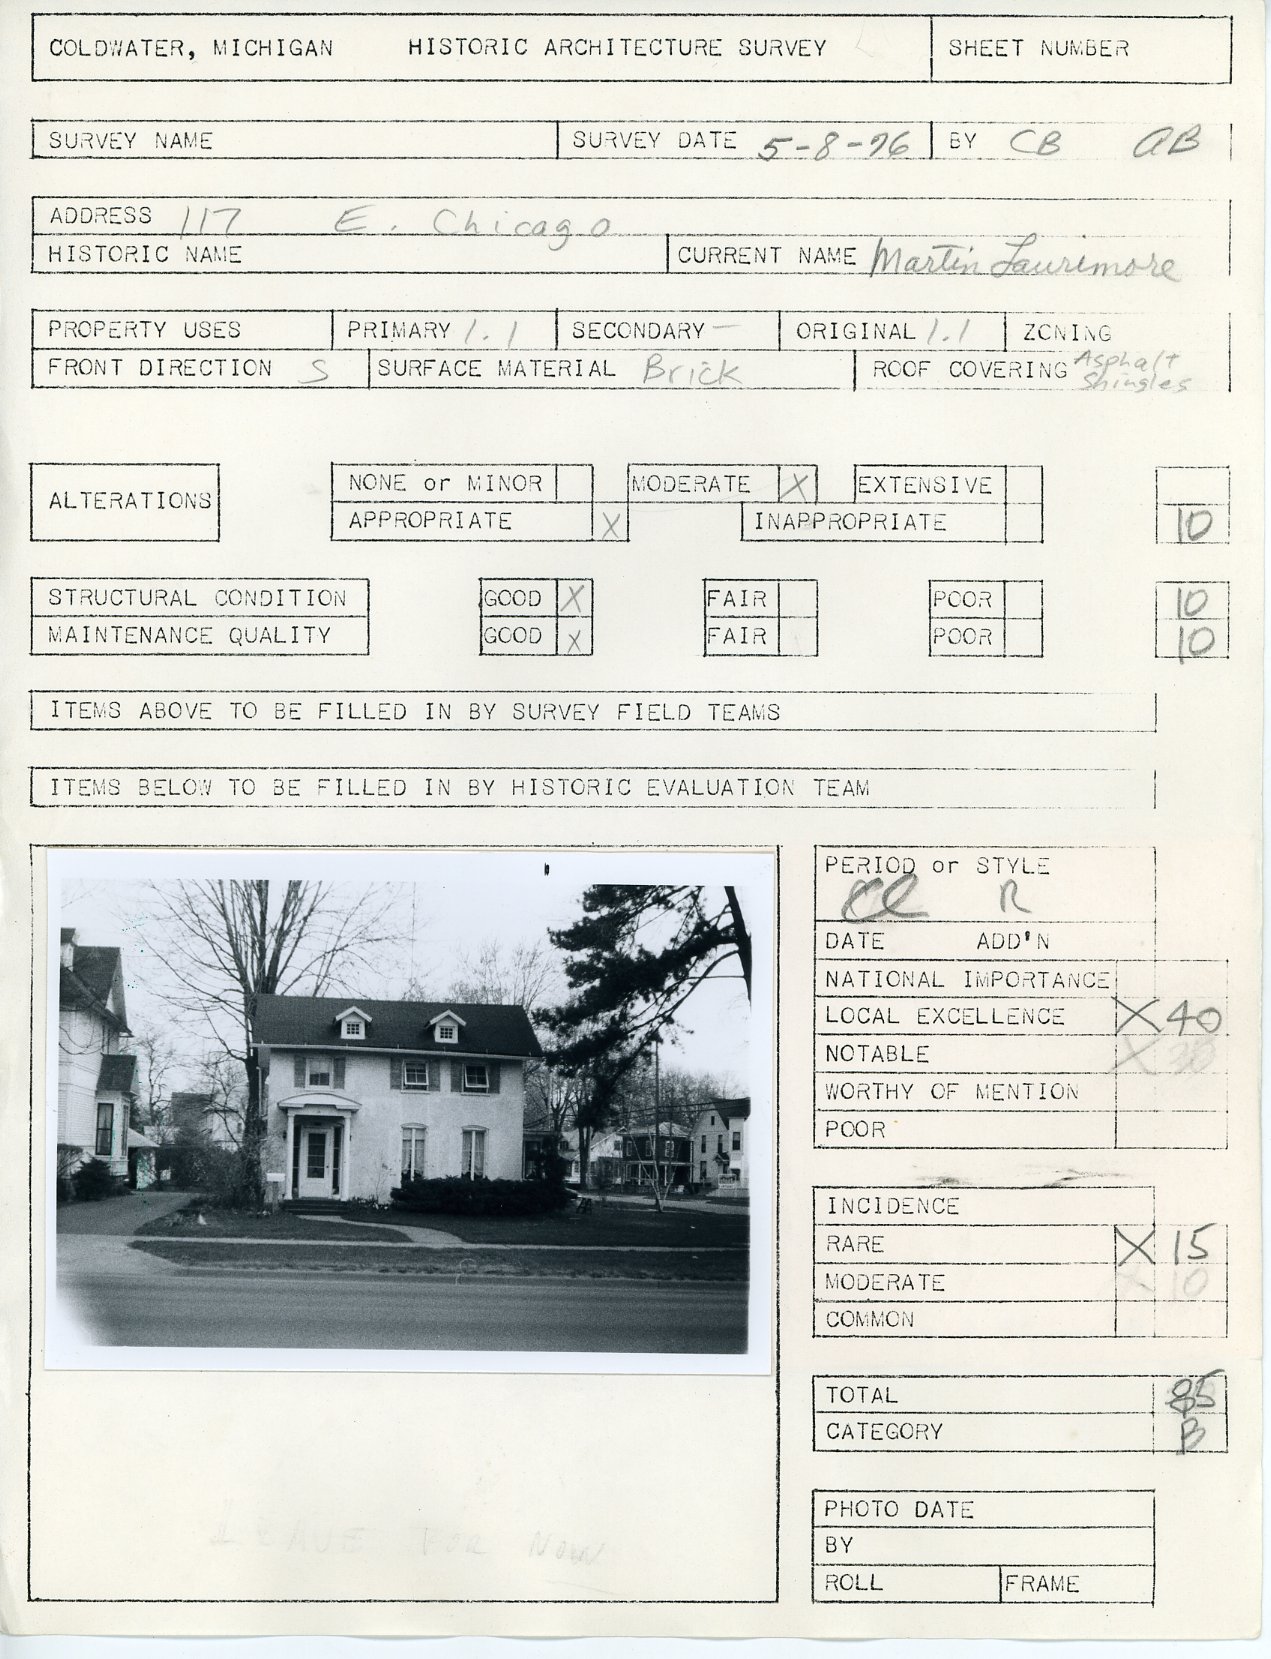 COLDWATER, MICHIGAN HISTORIC ARCHITECTURE SURVEY SHEET NUMBER
SURVEY NAME SURVEY DATE 5-8-76 BY CB AB
ADDRESS 117 E. Chicago
HISTORIC NAME CURRENT NAME Martin Laurimore
PROPERTY USES PRIMARY 1.1 SECONDARY — ORIGINAL 1.1 ZONING
FRONT DIRECTION S SURFACE MATERIAL Brick ROOF COVERING Asphalt Shingles
ALTERATIONS
NONE or MINOR MODERATE X EXTENSIVE
APPROPRIATE X INAPPROPRIATE 10
STRUCTURAL CONDITION GOOD X FAIR POOR 10
MAINTENANCE QUALITY GOOD X FAIR POOR 10
ITEMS ABOVE TO BE FILLED IN BY SURVEY FIELD TEAMS
ITEMS BELOW TO BE FILLED IN BY HISTORIC EVALUATION TEAM
PERIOD or STYLE
R
DATE ADD'N
NATIONAL IMPORTANCE
LOCAL EXCELLENCE X 40
NOTABLE X
WORTHY OF MENTION
POOR
INCIDENCE
RARE X 15
MODERATE X 10
COMMON
TOTAL 85
CATEGORY B
PHOTO DATE
BY
ROLL FRAME
FOR NOW